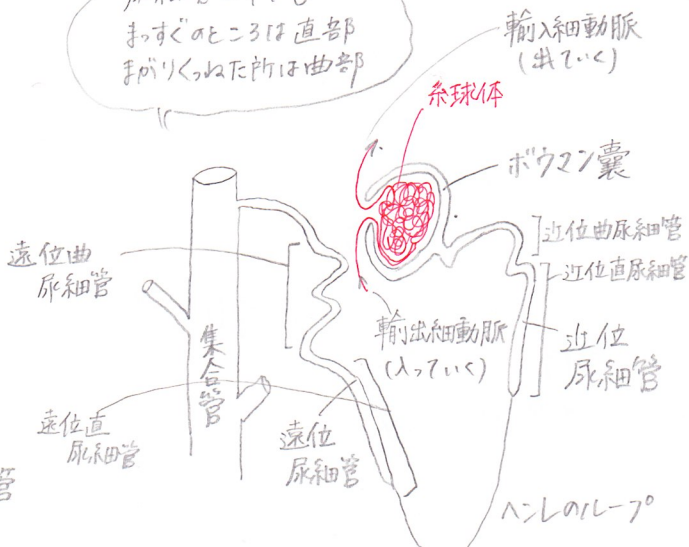 まっすぐのところは直部
まがりくねった所は曲部
輸入細動脈
(出ていく)
糸球体
ボウマン嚢
近位曲尿細管
近位直尿細管
近位
尿細管
遠位曲
尿細管
輸出細動脈
(入っていく)
集合管
遠位直
尿細管
遠位
尿細管
管
ヘンレのループ